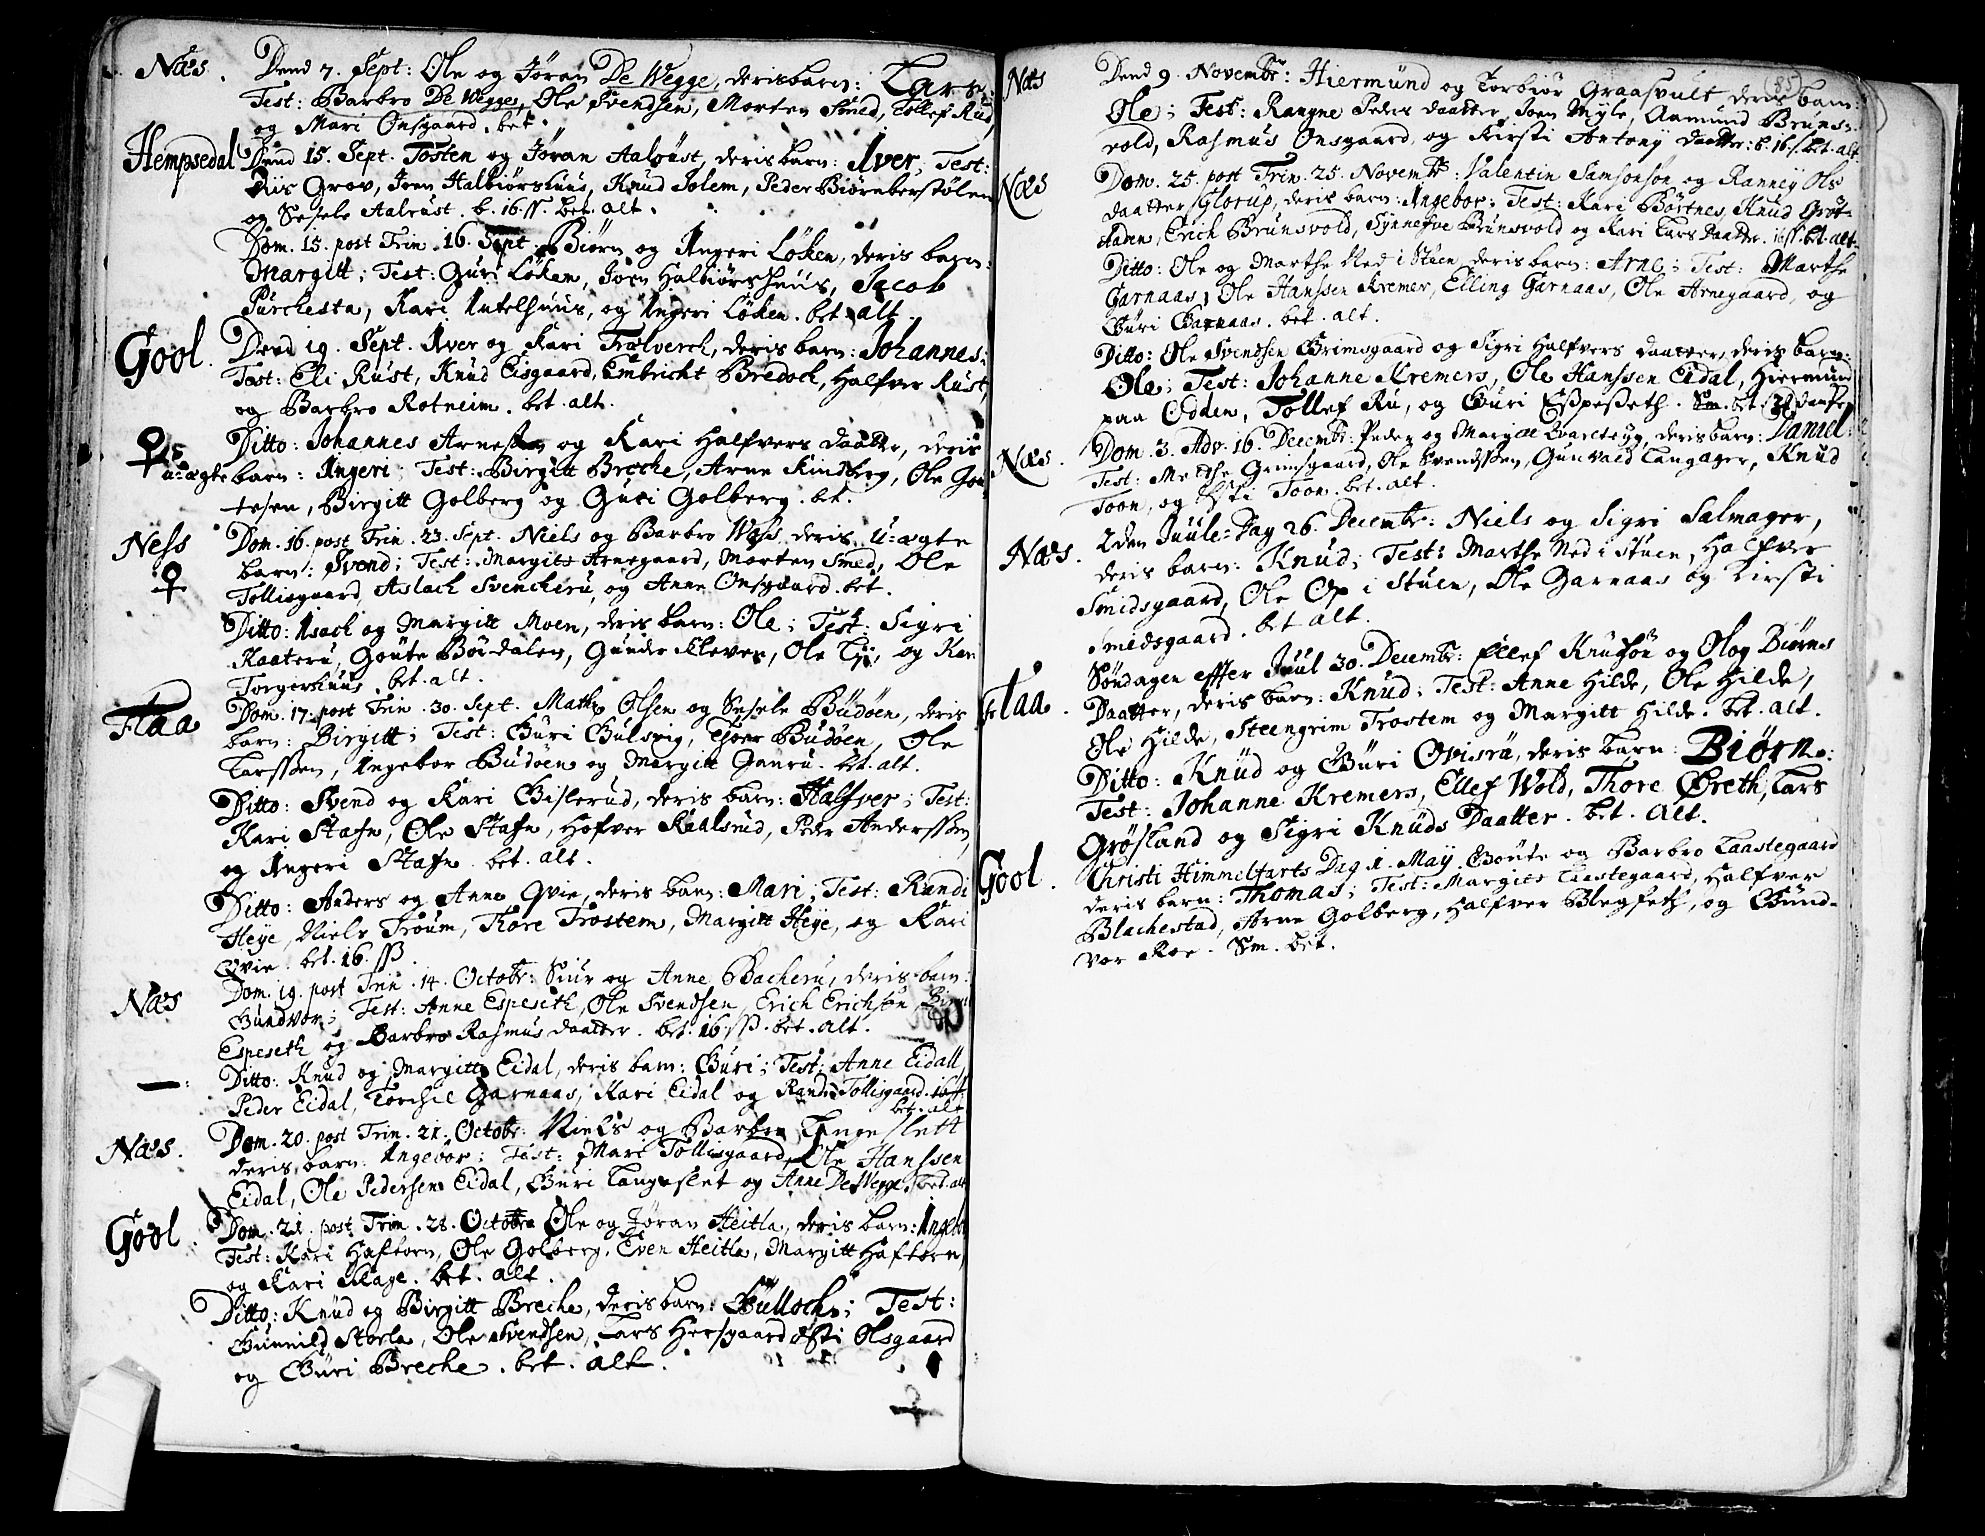 Næs. Dend 7. Sept: Ole og Jøran De Wegge, deris barn: Lars.
Test: Barbro De Wegge, Ole Svendsen, Morten Smed, Tollef Rud,
og Mari Onsgaard. bet.
Hempsedal Dend 15. Sept. Tosten og Jøran Aalrust, deris barn: Iver; Test:
Riis Grov, Joen Halbiørshuus, Knud Solem, Peder Biørnberstølen
og Sesele Aalrust. b. 16. ss. bet. alt.
Dom. 15. post Trin. 16. Sept: Biørn og Ingeri Løken, deris barn:
Margitt; Test: Guri Løken, Joen Halbiørshuus, Jacob
Purchesta, Kari Intelhuus, og Ingeri Løken. bet. alt.
Gool. Dend 19. Sept. Iver og Kari Trølverch, deris barn: Johannes;
Test: Eli Rust, Knud Eisgaard, Embricht Bredoch, Halfver Rust,
og Barbro Rotneim. bet. alt.
Ditto: Johannes Arnessen og Kari Halfvers daatter, deris
u-ægte barn: Ingeri; Test: Birgitt Breche, Arne Kinsberg, Ole Gou
tesen, Birgitt Golberg og Guri Golberg. bet.
Ness Dom. 16. post Trin. 23. Sept. Niels og Barbro Wass, deris u-ægte
barn: Svend; Test: Margite Arnegaard, Morten Smed, Ole
Tollisgaard, Aslach Svencheru, og Anne Onsgaard. bet.
Ditto: Isach og Margitt Moen, deris barn: Ole; Test: Sigri
Kaateru, Goute Bøidalen, Gunder Kleven, Ole Lii, og Kari
Torgershuus. bet. alt.
Flaa Dom. 17. post Trin. 30. Sept. Mathis Olsen og Sesele Budøen, deris
barn: Birgitt; Test: Guri Gulsvig, Thoer Budøen, Ole
Larssen, Ingebor Budøen og Margitt Ganru. bet. alt.
Ditto: Svend og Kari Gislerud, deris barn: Halfver; Test:
Kari Stafn, Ole Stafn, Hofver Raalsrud, Peder Anderssen,
og Ingeri Stafn. bet. alt.
Ditto: Anders og Anne Qvie, deris barn: Mari; Test: Randi
Heye, Niels Troum, Thore Trostem, Margitt Heye, og Kari
Qvie. bet. 16. ss.
Næs Dom. 19. post Trin. 14. Octobr: Siur og Anne Bacheru, deris barn:
Gundvor; Test: Anne Espeseth, Ole Svendsen, Erich Erichsen,
Espeseth og Barbro Rasmus daatter. bet. 16. ss. bet. alt.
—: Ditto: Knud og Margitte Eidal, deris barn: Guri; Test: Anne Eidall,
Peder Eidal, Torchil Garnaas, Kari Eidal og Randi Tollisgaard. 16 ss.
bet. alt.
Næs. Dom. 20. post Trin. 21. Octobr: Niels og Barbro Langeslett
deris barn: Ingebor; Test: Mari Tollisgaard, Ole Hanssen
Eidal, Ole Pedersen Eidal, Guri Langeslet og Anne De Wegge. bet. alt
Gool. Dom. 21. post Trin. 28. Octobr Ole og Jøran Heitla, deris barn: Ingebor
Test: Kari Haftorn, Ole Golberg, Even Heitla, Margitt Haftorn,
og Kari Kage. bet. alt.
Ditto: Knud og Birgitt Breche, deris barn: Gulloch; Test:
Gunnild Storla, Ole Svendsen, Lars Hersgaard Østi Olsgaard
og Guri Breche. bet. alt.
(85)
Næs Dend 9. Novembr: Hiermund og Torbiør Graasvult deris barn:
Ole; Test: Rangne Peders daatter, Joen Myle, Aamund Bruns-
vold, Rasmus Onsgaard, og Kirsti Antony daatter: b. 16 ss. bet. alt.
Næs Dom. 25. post Trin. 25. Novembr: Valentin Samsonsøn og Ranney Ols
daatter Glorup, deris barn: Ingebor; Test: Kari Børtnes, Knud Grøt-
staden, Erich Brunsvold, Synnefve Brunsvold og Kari Lars Daatter. 16 ss. bet. alt.
Ditto: Ole og Marthe Ned i Stuen, deris barn: Arne; Test: Marthe
Garnaas, Ole Hanssen Kremer, Elling Garnaas, Ole Arnegaard, og
Guri Garnaas. bet. alt.
Ditto: Ole Svendsen Grimsgaard og Sigri Halfvers daatter, deris barn:
Ole; Test: Johanne Kremers, Ole Hanssen Eidal, Hiermund
paa Odden, Tollef Ru, og Guri Espeseth. Sm. bet.
Næs. Dom. 3. Adv. 16. Decembr: Peder og Margit Qvarlteug, deris barn: Daniel:
Test: Marthe Grimsgaard, Ole Svendssen, Gunvald Langager, Knud
Toon, og Østi Toon. bet. alt.
Næs. 2den Juule-Dag 26. Decembr: Niels og Sigri Salmager,
deris barn: Knud; Test: Marthe Ned i Stuen, Halfver
Smidsgaard, Ole Op i Stuen, Ole Garnaas og Kirsti
Smidsgaard. bet alt.
Flaa. Søndagen effter Juul 30. Decembr: Ellef Knudsøn og Olog Biørns
Daatter, deris barn: Knud; Test: Anne Hilde, Ole Hilde,
Ole Hilde, Steengrim Trostem og Margitt Hilde. bet. alt.
Ditto: Knud og Guri Qvisru, deris barn: Biørn:
Test: Johanne Kremers, Ellef Wold, Thore Øreth, Lars
Grøsland og Sigri Knuds Daatter. bet. alt.
Gool. Christi Himmelfarts Dag 1. May. Goute og Barbro Laastegaard
deris barn: Thomas; Test: Margitt Laastegaard, Halfver
Blachestad, Arne Golberg, Halfver Blegseth, og Gund-
vor Roe. Sm. bet.